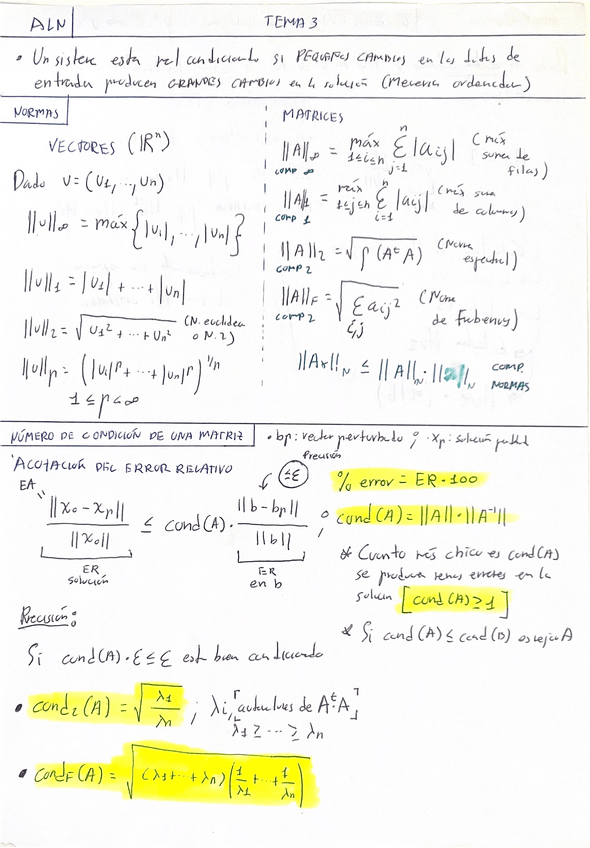 ALN TEMA 3
• Un sistema está mal condicionado si PEQUEÑOS CAMBIOS en los datos de
entrada producen GRANDES CAMBIOS en la solución (Memoria ordenador)
NORMAS
VECTORES (ℝⁿ)
Dado v=(v1,...,vn)
||v||∞ = máx{|v1|,...,|vn|}
||v||1 = |v1| + ... + |vn|
||v||2 = √(v1² + ... + vn²) (N. euclidea o N. 2)
||v||p = (|v1|^p + ... + |vn|^p)^(1/n)
1 ≤ p < ∞
MATRICES
||A||∞ = máx 1≤i≤n Σ j=1 n |aij| (máx suma de filas)
COMP ∞
||A||1 = máx 1≤j≤n Σ i=1 n |aij| (máx suma de columnas)
COMP 1
||A||2 = √ρ(AᵗA) (Norma espectral)
COMP 2
||A||F = √Σ i,j aij² (Norma de Frobenius)
COMP 2
||Ax||N ≤ ||A||N · ||x||N COMP. NORMAS
NÚMERO DE CONDICIÓN DE UNA MATRIZ • bp: vector perturbado ; • xp: solución
ACOTACIÓN DEL ERROR RELATIVO
EA
Precisión
≤ε
||x0 - xp|| / ||x0|| ≤ cond(A) · ||b - bp|| / ||b|| ;
ER solución
ER en b
% error = ER · 100
cond(A) = ||A|| · ||A⁻¹||
* Cuanto más chico es cond(A)
se producen menos errores en la
solución [cond(A) ≥ 1]
* Si cond(A) ≤ cond(B) es mejor A
Precisión:
Si cond(A) · ε ≤ ε está bien condicionado
• cond2(A) = √(λ1/λn) ; λi, [autovalores de Aᵗ·A]
λ1 ≥ ... ≥ λn
• condF(A) = √((λ1 + ... + λn)(1/λ1 + ... + 1/λn))